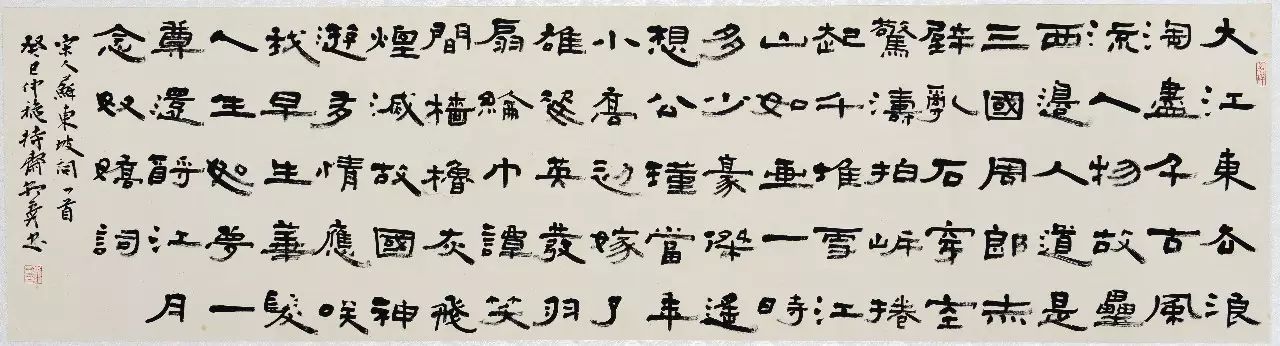 大江東去浪
淘盡千古風
流人物故壘
西邊人道是
三國周郎赤
壁亂石穿空
驚濤拍岸捲
起千堆雪江
山如画一時
多少豪傑遙
想公瑾當年
小喬初嫁了
雄姿英發羽
扇綸巾譚笑
間檣櫓灰飛
煙滅故國神
遊多情應咲
我早生華髮
人生如夢一
尊還酹江月
念奴嬌詞
宋人蘇東坡詞一首
癸巳仲